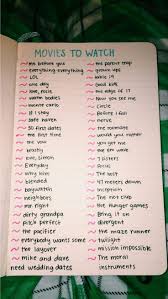 MOVIES TO WATCH
me before you
everything everything
LOL
one day
warm bodies
monte carlo
If I stay
safe haven
50 first dates
the first time
the vow
Wally
love, Simon
Everyday
Why Him
blended
baywatch
neighbors
mr. right
dirty grandpa
pitch perfect
the pacifier
everybody wants some
the layover
mike and dave
need wedding dates
the parent trap
grown ups
taxie 19
good kids
the edge of 17
now you see me
circle
Before I fall
nerve
the roommate
would your mother
you get me
the are wave
7 sisters
focus
The Test
47 meters down
Inception
the notebook
the hunger games
Bring it on
divergent
the maze runner
twilight
mission impossible
The moral
instruments